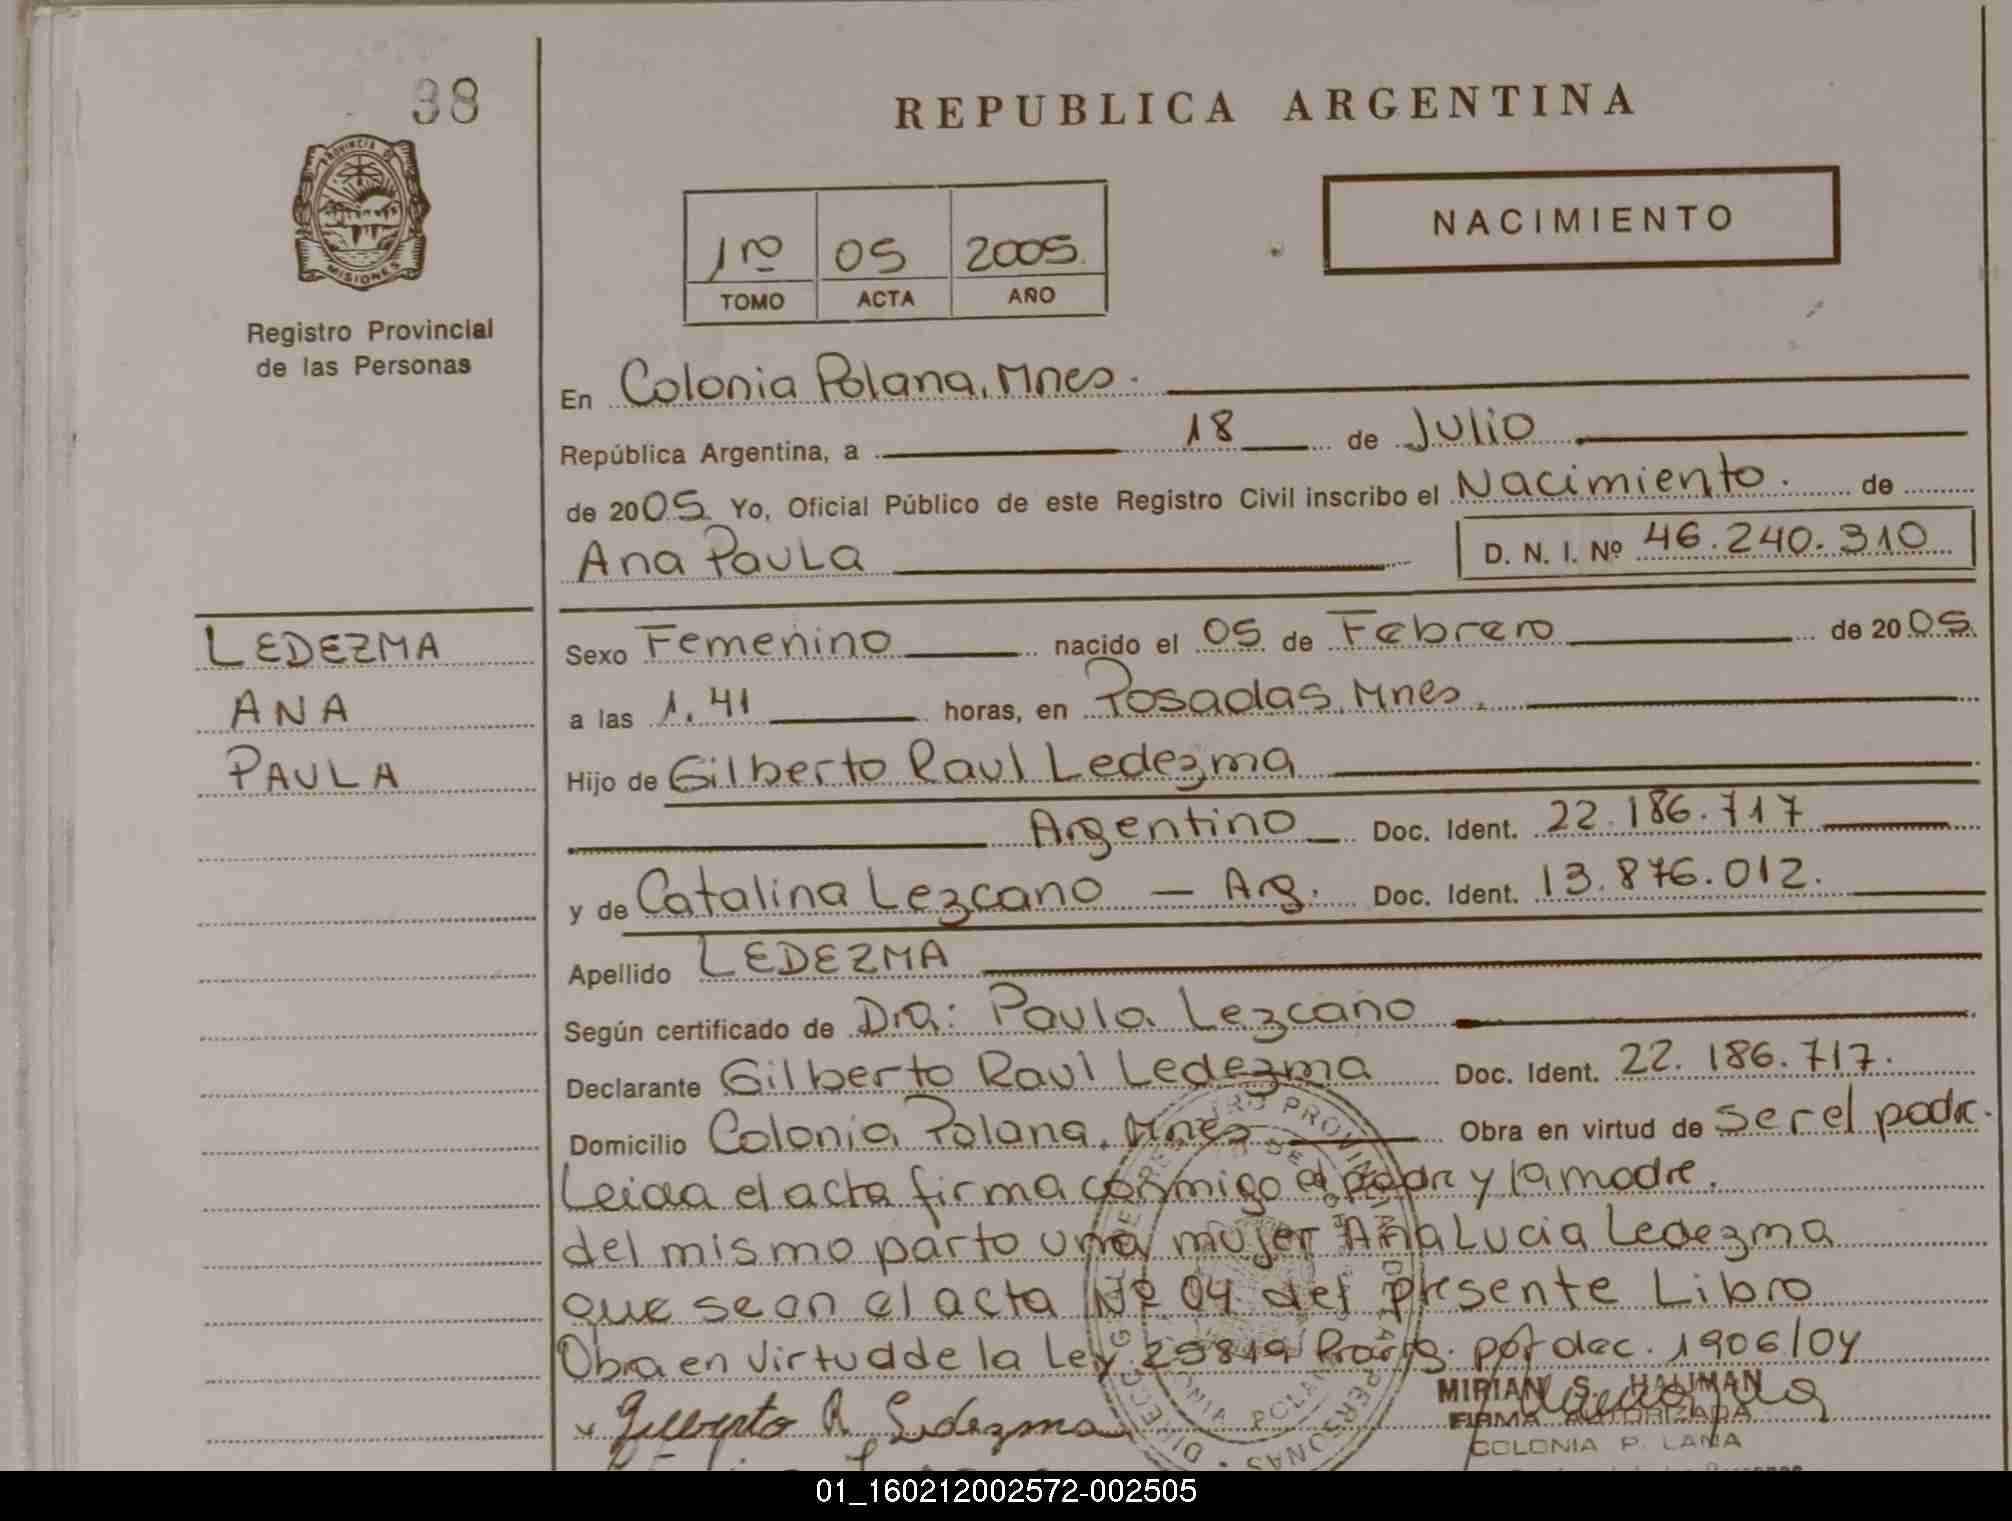 38
REPUBLICA ARGENTINA
PROVINCIA DE
MISIONES
Registro Provincial
de las Personas
1ro 05 2005
TOMO ACTA AÑO
NACIMIENTO
En Colonia Polana, Mnes.
República Argentina, a 18 de Julio
de 2005. Yo, Oficial Público de este Registro Civil inscribo el Nacimiento. de
Ana Paula D. N. I. Nº 46.240.310
LEDEZMA
ANA
PAULA
Sexo Femenino nacido el 05 de Febrero de 2005.
a las 1.41 horas, en Posadas, Mnes.
Hijo de Gilberto Raul Ledezma
Argentino Doc. Ident. 22.186.717
y de Catalina Lezcano — Arg. Doc. Ident. 13.876.012.
Apellido LEDEZMA
Según certificado de Dra: Paula Lezcano
Declarante Gilberto Raul Ledezma Doc. Ident. 22.186.717.
Domicilio Colonia Polana, Mnes Obra en virtud de ser el padre.
Leida el acta firma conmigo el padre y la madre.
del mismo parto una mujer Ana Lucia Ledezma
que se an el acta Nº 04 del presente Libro
Obra en virtud de la Ley 25819 por dec. 1906/04
Gilberto R. Ledezma
MIRIAN S. HALIMAN
FIRMA AUTORIZADA
COLONIA P. LANA
01_160212002572-002505